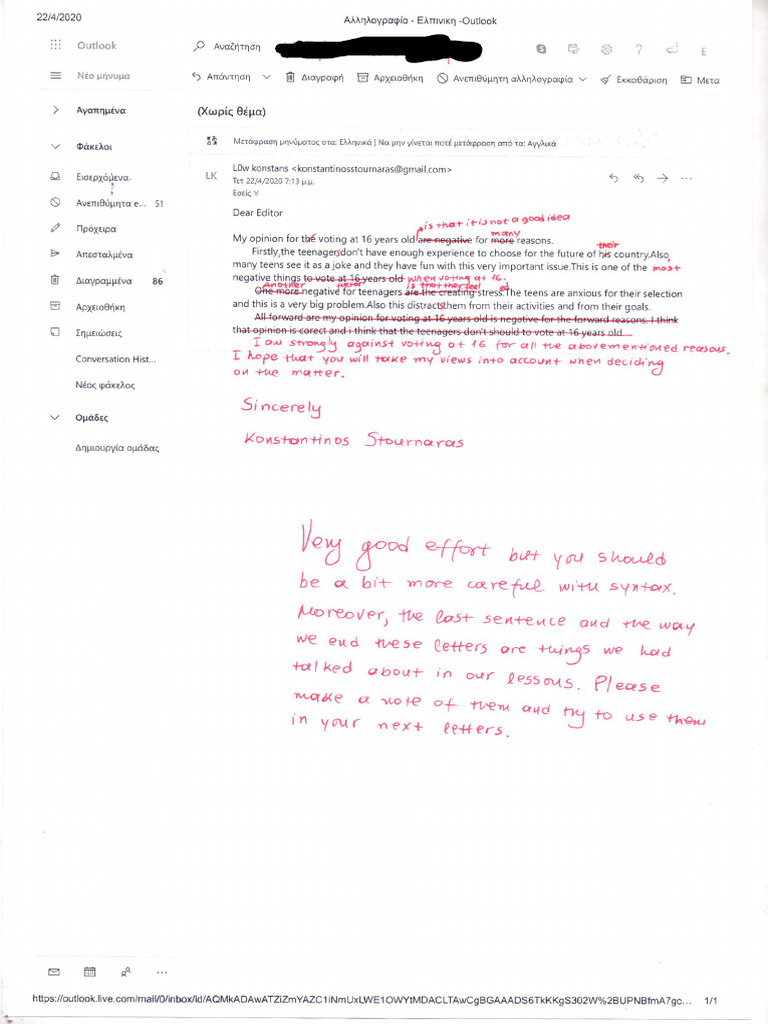 22/4/2020
Αλληλογραφία - Ελπινικη -Outlook
Outlook
Αναζήτηση
E
Νέο μήνυμα
Απάντηση
Διαγραφή
Αρχειοθήκη
Ανεπιθύμητη αλληλογραφία
Εκκαθάριση
Μετα
Αγαπημένα
(Χωρίς θέμα)
Φάκελοι
Μετάφραση μηνύματος στα: Ελληνικά | Να μην γίνεται ποτέ μετάφραση από τα: Αγγλικά
Εισερχόμενα
LK
L0w konstans <konstantinosstournaras@gmail.com>
Τετ 22/4/2020 7:13 μ.μ.
Εσείς
Ανεπιθύμητα e... 51
Πρόχειρα
Απεσταλμένα
Διαγραμμένα 86
Αρχειοθήκη
Σημειώσεις
Conversation Hist...
Νέος φάκελος
Ομάδες
Δημιουργία ομάδας
Dear Editor
is that it is not a good idea
many
My opinion for the voting at 16 years old are negative for more reasons.
their
Firstly,the teenagers don't have enough experience to choose for the future of his country.Also,
many teens see it as a joke and they have fun with this very important issue.This is one of the most
negative things to vote at 16 years old when voting at 16.
Another is that they feel ed
One more negative for teenagers are the creating stress.The teens are anxious for their selection
and this is a very big problem.Also this distracts them from their activities and from their goals.
All forward are my opinion for voting at 16 years old is negative for the forward reasons. I think
that opinion is corect and i think that the teenagers don't should to vote at 16 years old
I am strongly against voting at 16 for all the abovementioned reasons.
I hope that you will take my views into account when deciding
on the matter.
Sincerely
Konstantinos Stournaras
Very good effort but you should
be a bit more careful with syntax.
Moreover, the last sentence and the way
we end these letters are things we had
talked about in our lessons. Please
make a note of them and try to use them
in your next letters.
https://outlook.live.com/mail/0/inbox/id/AQMkADAwATZiZmYAZC1iNmUxLWE1OWYtMDACLTAwCgBGAAADS6TkKKgS302W%2BUPNBfmA7gc... 1/1